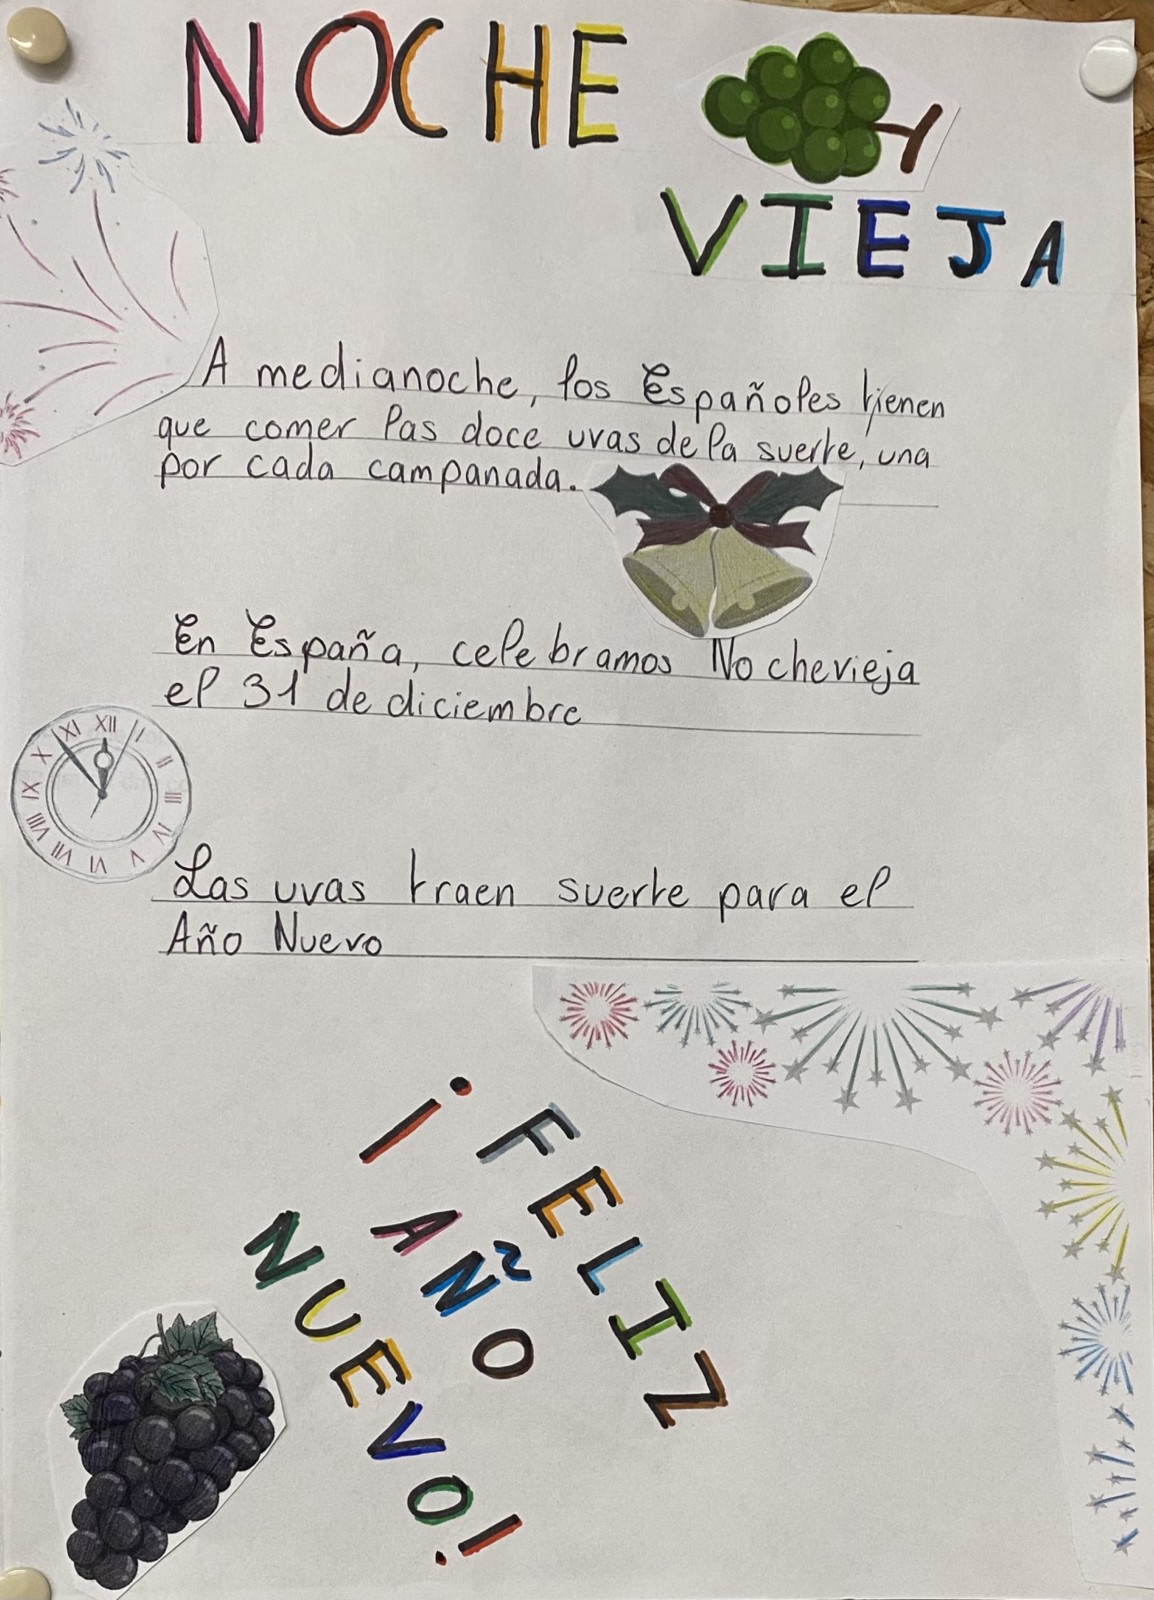 NOCHE
VIEJA
A medianoche, los Españoles tienen
que comer las doce uvas de la suerte, una
por cada campanada.
En España, celebramos Nochevieja
el 31 de diciembre
XII I II III IV V VI VII VIII IX X XI
Las uvas traen suerte para el
Año Nuevo
¡FELIZ
AÑO
NUEVO!